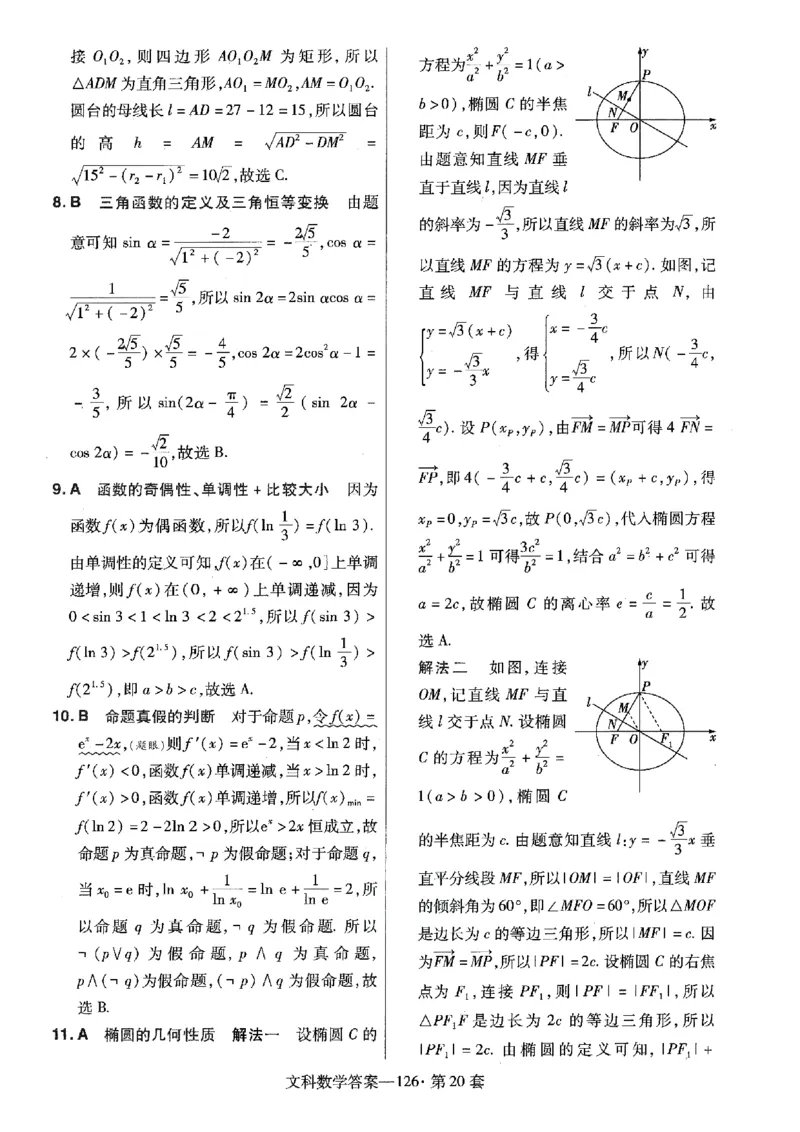 接 O₁O₂, 则四边形 AO₁O₂M 为矩形, 所以
△ADM 为直角三角形, AO₁ = MO₂, AM = O₁O₂.
圆台的母线长 l = AD = 27 - 12 = 15, 所以圆台
的 高 h = AM = √(AD² - DM²) =
√(15² - (r₂ - r₁)²) = 10√2, 故选 C.
8. B 三角函数的定义及三角恒等变换 由题
意可知 sin α = -2/√(1² + (-2)²) = -2√5/5, cos α =
1/√(1² + (-2)²) = √5/5, 所以 sin 2α = 2sin αcos α =
2 × (-2√5/5) × √5/5 = -4/5, cos 2α = 2cos²α - 1 =
-3/5, 所以 sin(2α - π/4) = √2/2 (sin 2α -
cos 2α) = -√2/10, 故选 B.
9. A 函数的奇偶性、单调性 + 比较大小 因为
函数 f(x) 为偶函数, 所以 f(ln 1/3) = f(ln 3).
由单调性的定义可知, f(x) 在 (-∞, 0] 上单调
递增, 则 f(x) 在 (0, +∞) 上单调递减, 因为
0 < sin 3 < 1 < ln 3 < 2 < 2^1.5, 所以 f(sin 3) >
f(ln 3) > f(2^1.5), 所以 f(sin 3) > f(ln 1/3) >
f(2^1.5), 即 a > b > c, 故选 A.
10. B 命题真假的判断 对于命题 p, 令 f(x) =
eˣ - 2x, (题眼) 则 f′(x) = eˣ - 2, 当 x < ln 2 时,
f′(x) < 0, 函数 f(x) 单调递减, 当 x > ln 2 时,
f′(x) > 0, 函数 f(x) 单调递增, 所以 f(x)min =
f(ln 2) = 2 - 2ln 2 > 0, 所以 eˣ > 2x 恒成立, 故
命题 p 为真命题, ¬ p 为假命题; 对于命题 q,
当 x₀ = e 时, ln x₀ + 1/ln x₀ = ln e + 1/ln e = 2, 所
以命题 q 为真命题, ¬ q 为假命题. 所以
¬ (p∨q) 为假命题, p ∧ q 为真命题,
p∧(¬ q) 为假命题, (¬ p)∧q 为假命题, 故
选 B.
11. A 椭圆的几何性质 解法一 设椭圆 C 的
方程为 x²/a² + y²/b² = 1(a >
b > 0), 椭圆 C 的半焦
距为 c, 则 F(-c, 0).
由题意知直线 MF 垂
直于直线 l, 因为直线 l
y
P
l
M
N
F O x
的斜率为 -√3/3, 所以直线 MF 的斜率为 √3, 所
以直线 MF 的方程为 y = √3(x + c). 如图, 记
直线 MF 与直线 l 交于点 N, 由
{y = √3(x + c), y = -√3/3 x, 得 {x = -3/4 c, y = √3/4 c, 所以 N(-3/4 c,
√3/4 c). 设 P(x_P, y_P), 由 FM→ = MP→ 可得 4 FN→ =
FP→, 即 4(-3/4 c + c, √3/4 c) = (x_P + c, y_P), 得
x_P = 0, y_P = √3c, 故 P(0, √3c), 代入椭圆方程
x²/a² + y²/b² = 1 可得 3c²/b² = 1, 结合 a² = b² + c² 可得
a = 2c, 故椭圆 C 的离心率 e = c/a = 1/2. 故
选 A.
解法二 如图, 连接
OM, 记直线 MF 与直
线 l 交于点 N. 设椭圆
C 的方程为 x²/a² + y²/b² =
1(a > b > 0), 椭圆 C
y
P
l
M
N
F O F₁ x
的半焦距为 c. 由题意知直线 l: y = -√3/3 x 垂
直平分线段 MF, 所以 |OM| = |OF|, 直线 MF
的倾斜角为 60°, 即 ∠MFO = 60°, 所以 △MOF
是边长为 c 的等边三角形, 所以 |MF| = c. 因
为 FM→ = MP→, 所以 |PF| = 2c. 设椭圆 C 的右焦
点为 F₁, 连接 PF₁, 则 |PF| = |FF₁|, 所以
△PF₁F 是边长为 2c 的等边三角形, 所以
|PF₁| = 2c. 由椭圆的定义可知, |PF₁| +
文科数学答案—126·第 20 套